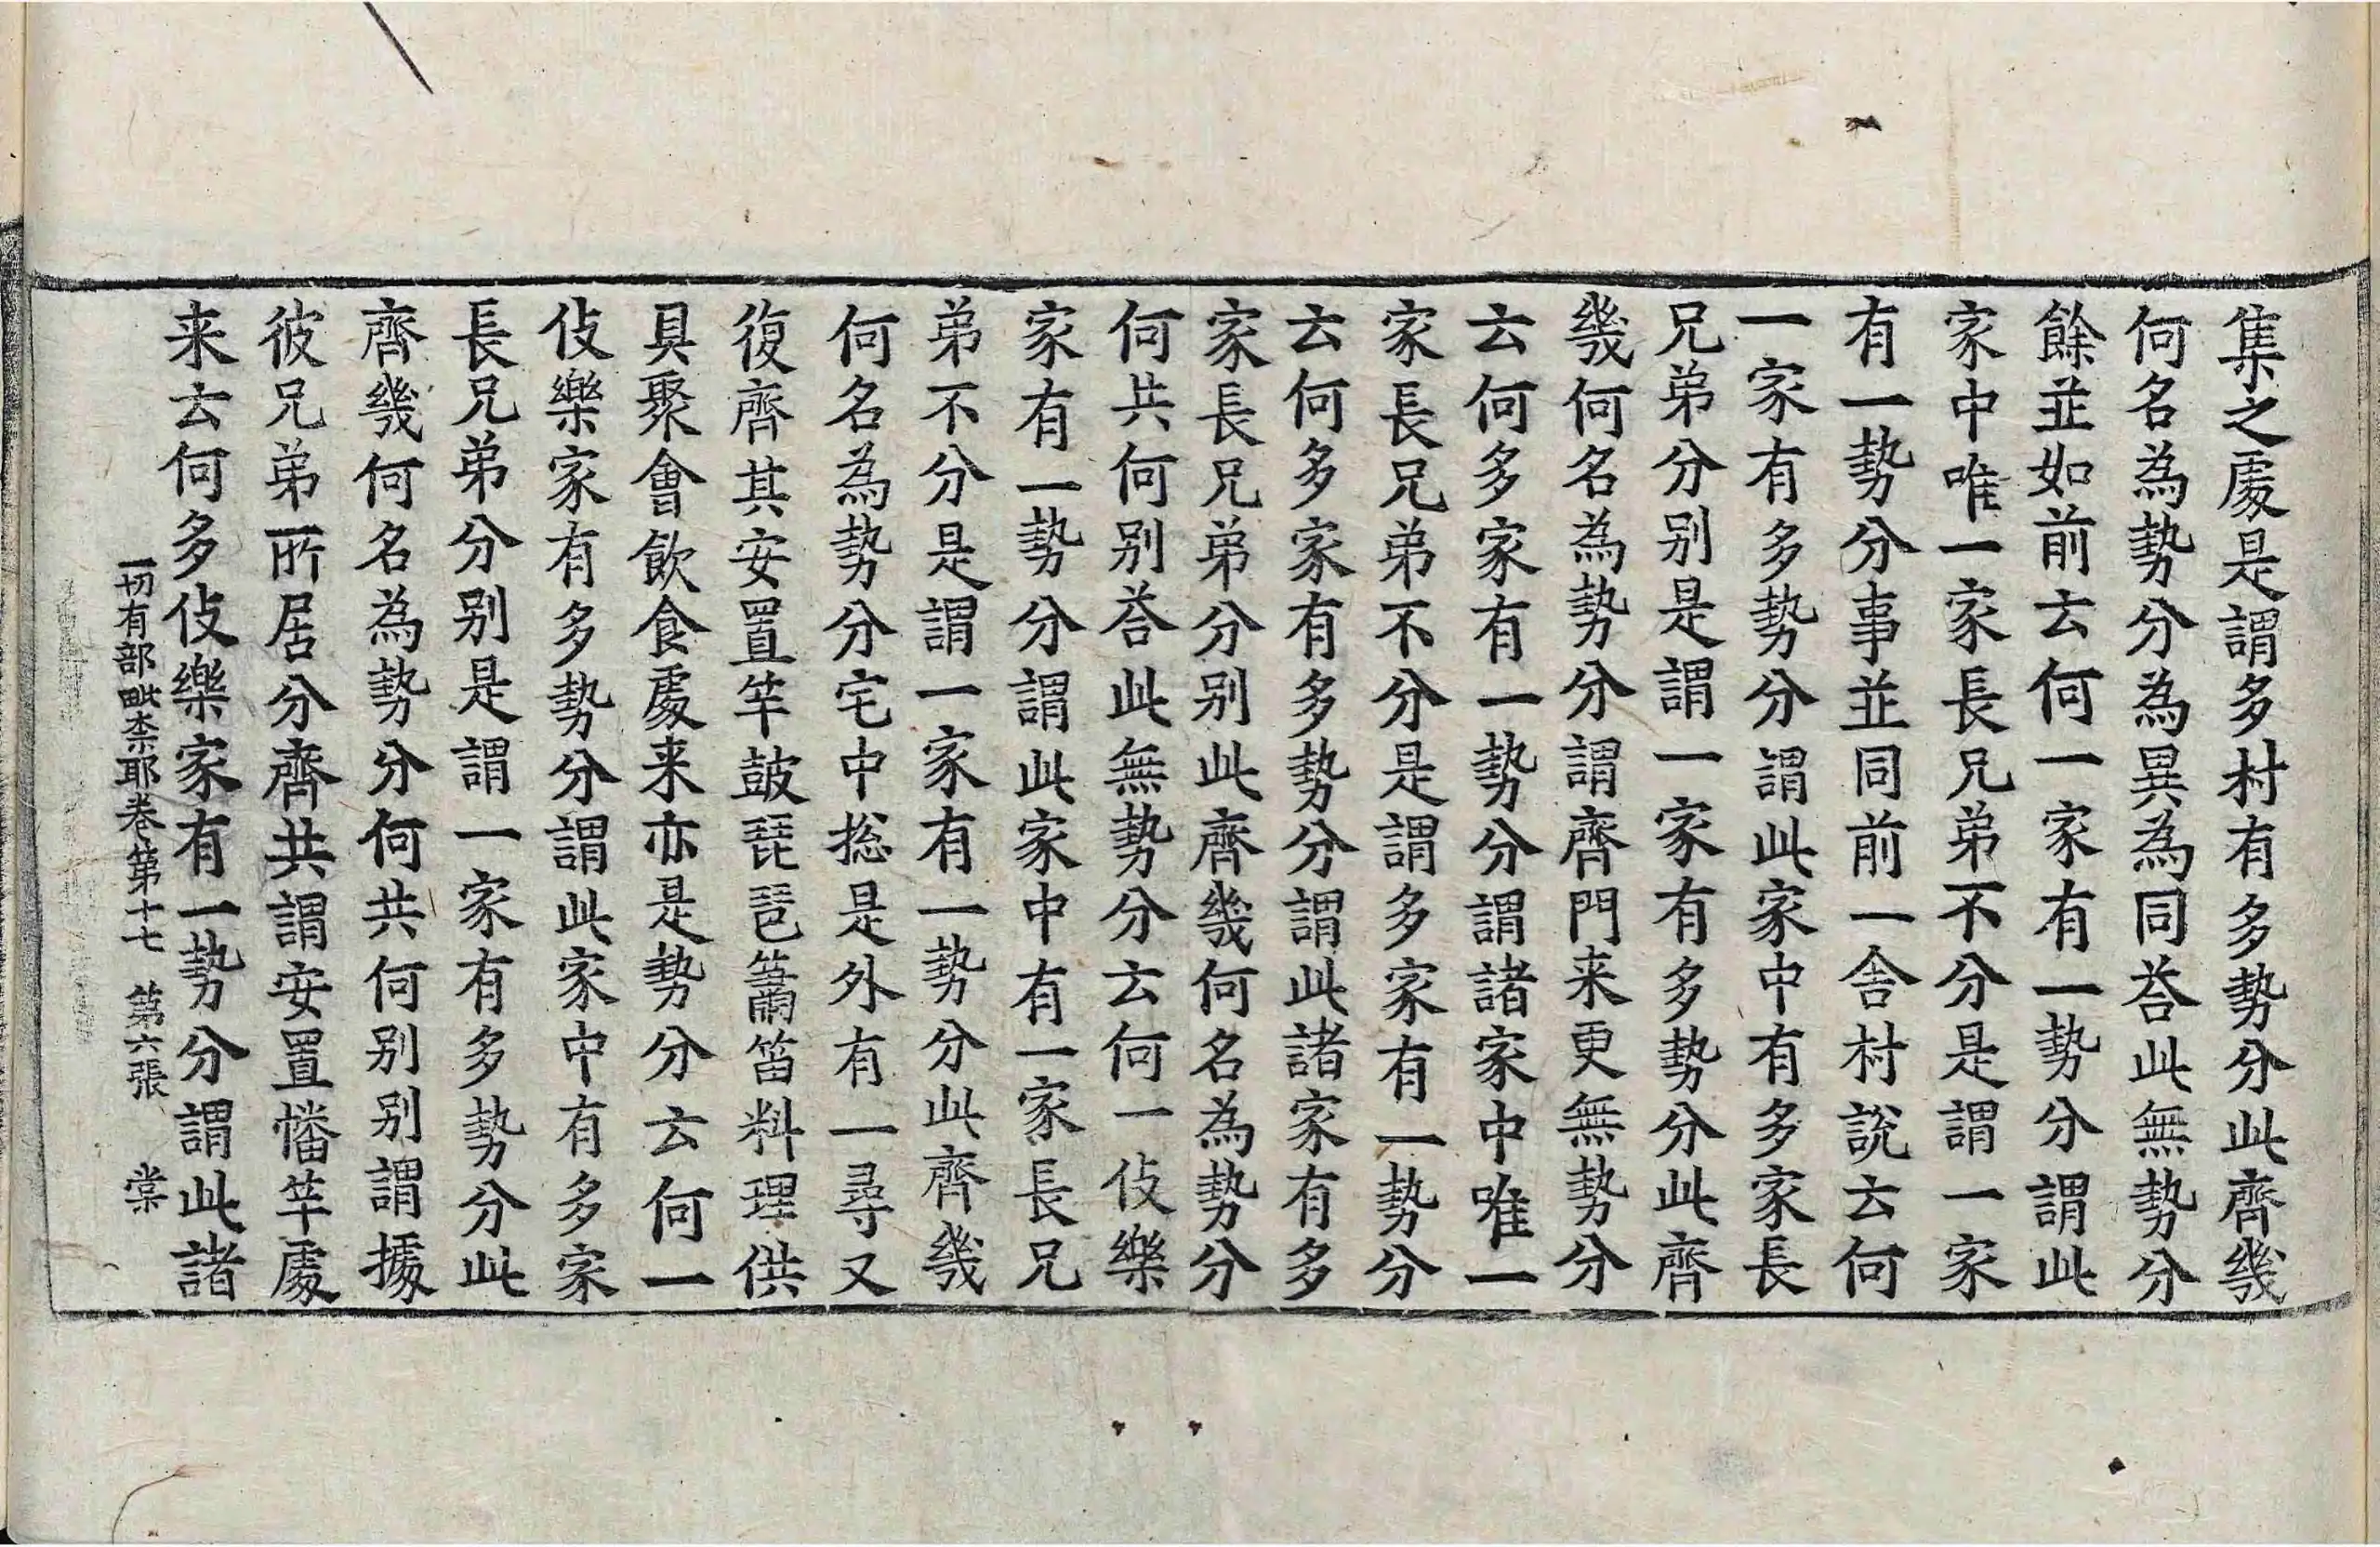 集之處是謂多村有多勢分此齊幾
何名為勢分為異為同荅此無勢分
餘並如前云何一家有一勢分謂此
家中唯一家長兄弟不分是謂一家
有一勢分事並同前一舍村說云何
一家有多勢分謂此家中有多家長
兄弟分别是謂一家有多勢分此齊
幾何名為勢分謂齊門来更無勢分
云何多家有一勢分謂諸家中唯一
家長兄弟不分是謂多家有一勢分
云何多家有多勢分謂此諸家有多
家長兄弟分别此齊幾何名為勢分
何共何别荅此無勢分云何一伎樂
家有一勢分謂此家中有一家長兄
弟不分是謂一家有一勢分此齊幾
何名為勢分宅中捴是外有一尋又
復齊其安置竿鼓琵琶簫笛料理供
具聚會飲食處来亦是勢分云何一
伎樂家有多勢分謂此家中有多家
長兄弟分别是謂一家有多勢分此
齊幾何名為勢分何共何别别謂據
彼兄弟所居分齊共謂安置幡竿處
来云何多伎樂家有一勢分謂此諸
一切有部毗柰耶卷第十七 第六張 棠